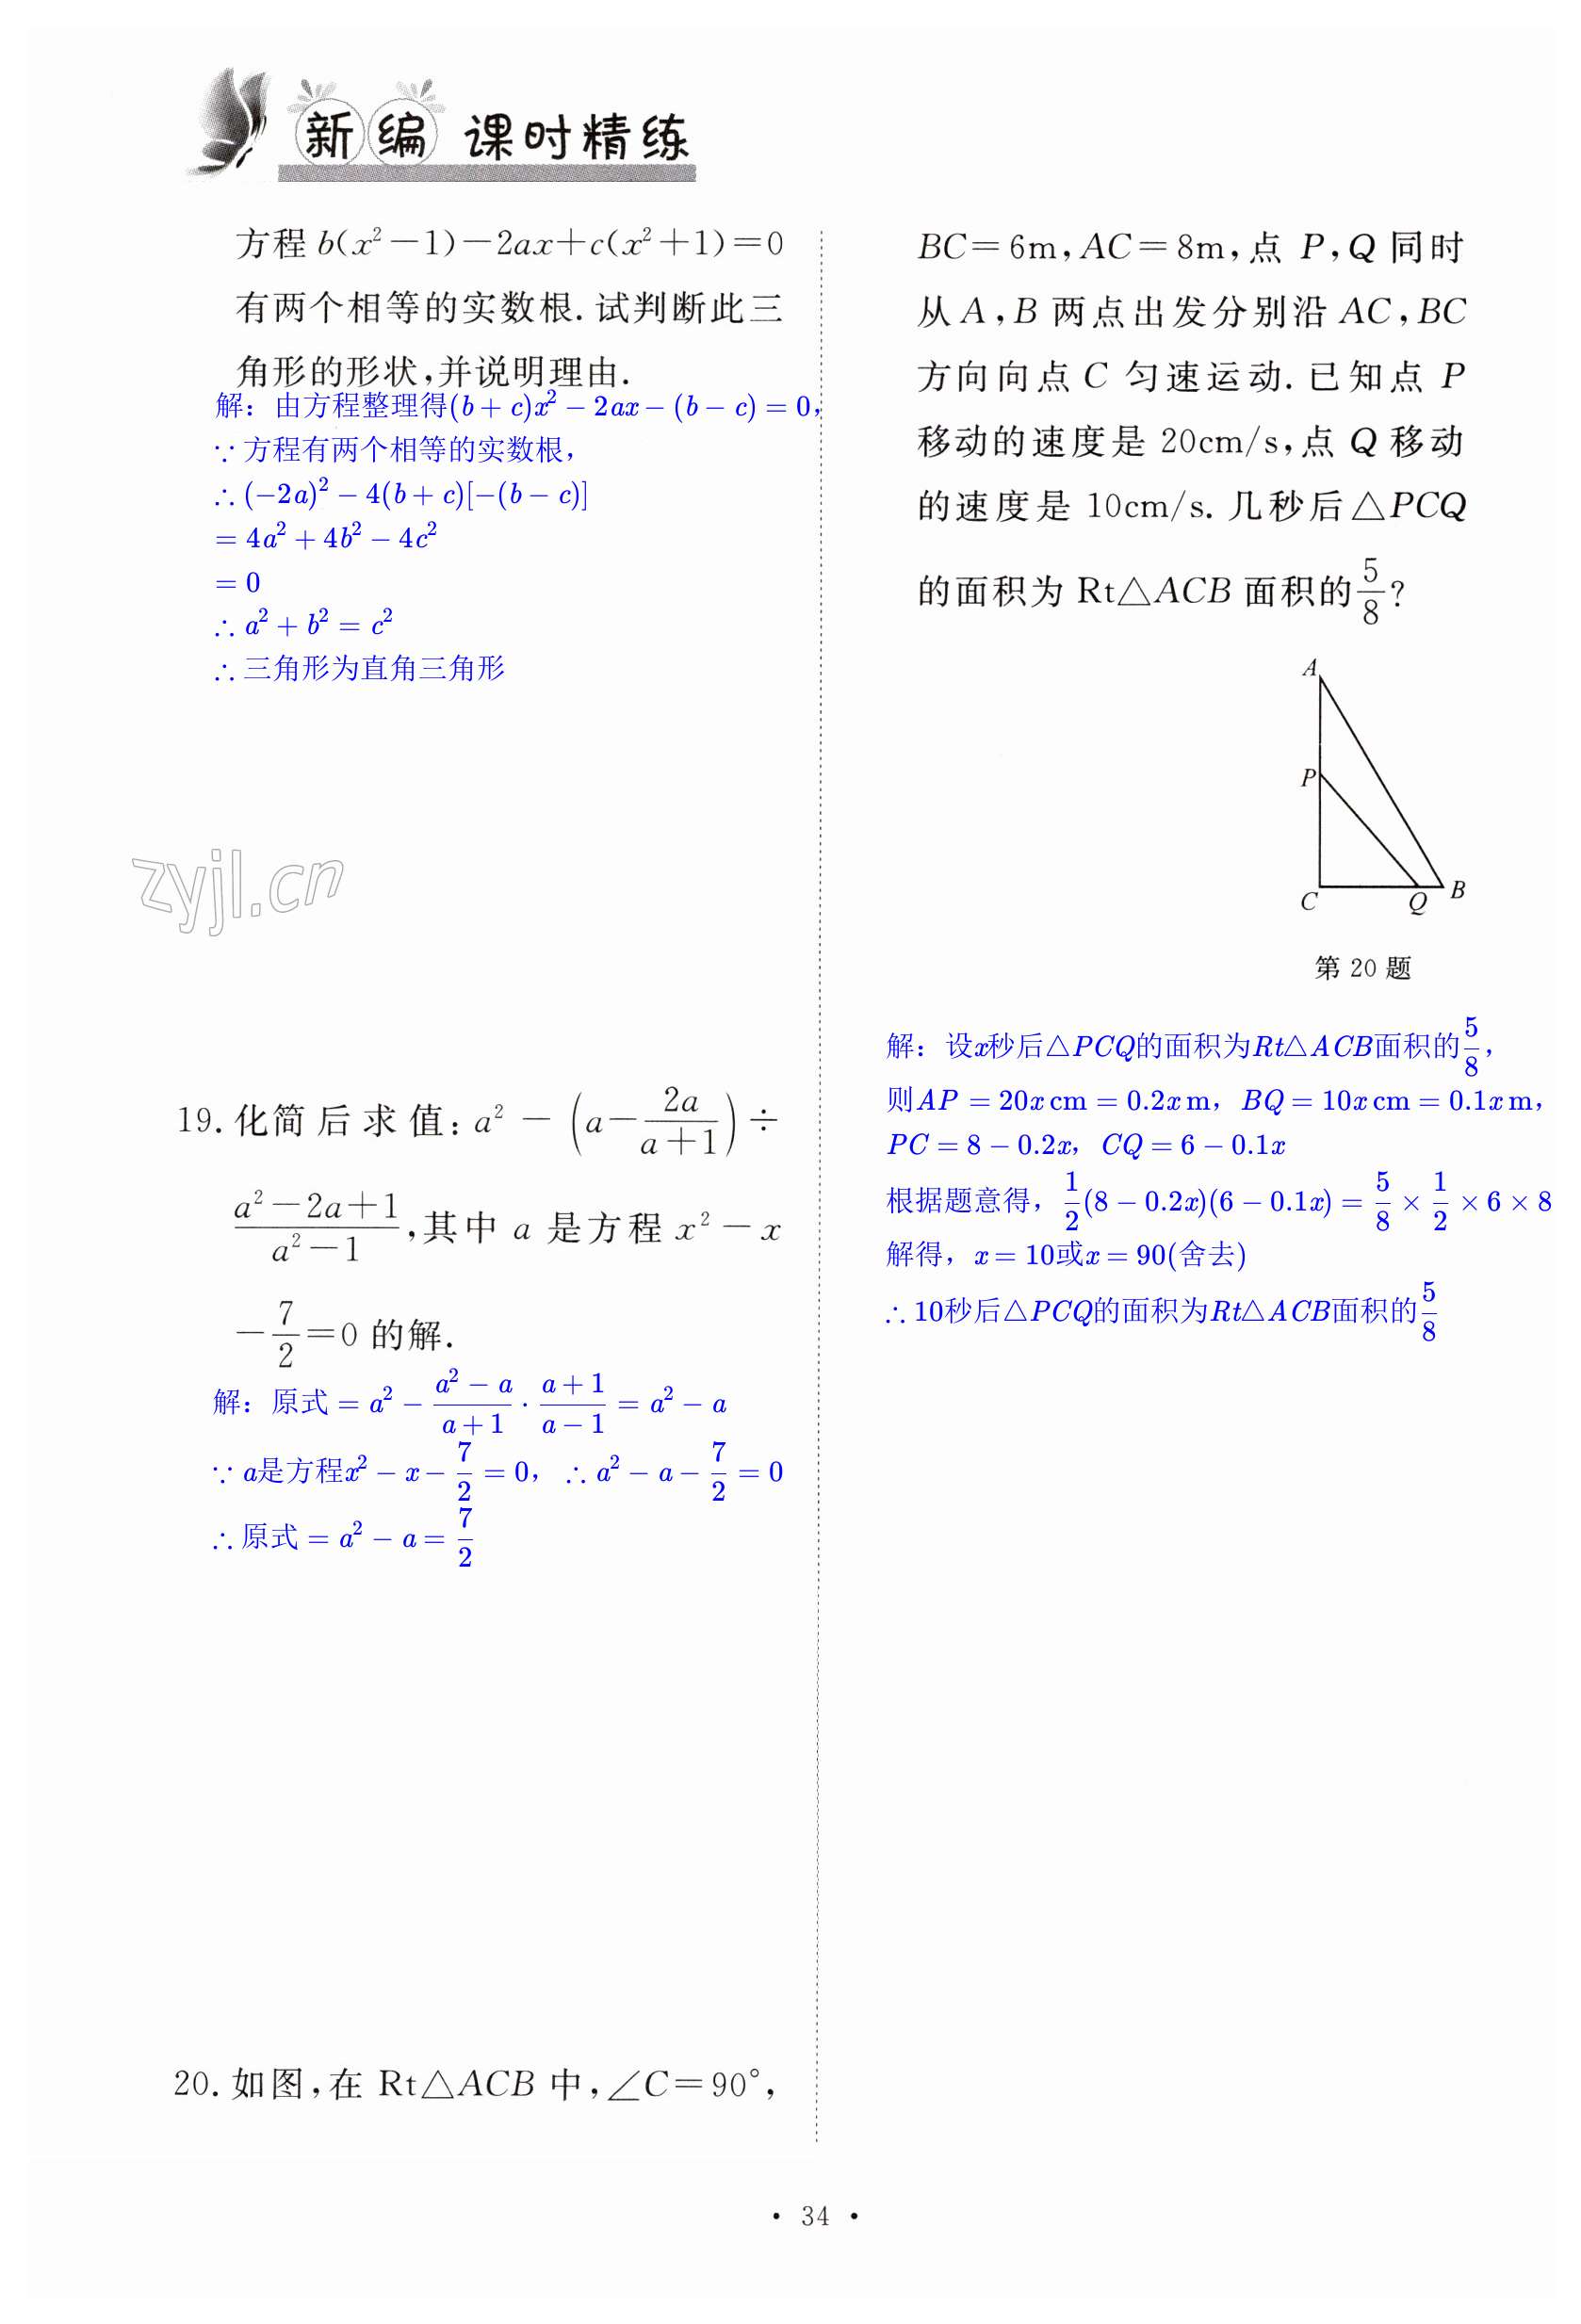 新编 课时精练
方程 b(x²－1)－2ax＋c(x²＋1)＝0
有两个相等的实数根. 试判断此三
角形的形状,并说明理由.
解：由方程整理得(b + c)x² − 2ax − (b − c) = 0，
∵ 方程有两个相等的实数根，
∴ (−2a)² − 4(b + c)[−(b − c)]
= 4a² + 4b² − 4c²
= 0
∴ a² + b² = c²
∴ 三角形为直角三角形
zyjl.cn
19. 化简后求值: a² － (a－2a/(a＋1)) ÷
(a²－2a＋1)/(a²－1), 其中 a 是方程 x²－x
－7/2＝0 的解.
解：原式 = a² − (a² − a)/(a + 1) · (a + 1)/(a − 1) = a² − a
∵ a是方程x² − x − 7/2 = 0， ∴ a² − a − 7/2 = 0
∴ 原式 = a² − a = 7/2
20. 如图,在 Rt△ACB 中,∠C＝90°,
BC＝6m,AC＝8m,点 P,Q 同时
从 A,B 两点出发分别沿 AC,BC
方向向点 C 匀速运动. 已知点 P
移动的速度是 20cm/s,点 Q 移动
的速度是 10cm/s. 几秒后△PCQ
的面积为 Rt△ACB 面积的5/8?
A
P
C
Q
B
第 20 题
解：设x秒后△PCQ的面积为Rt△ACB面积的5/8，
则AP = 20x cm = 0.2x m，BQ = 10x cm = 0.1x m，
PC = 8 − 0.2x，CQ = 6 − 0.1x
根据题意得，1/2(8 − 0.2x)(6 − 0.1x) = 5/8 × 1/2 × 6 × 8
解得，x = 10或x = 90(舍去)
∴ 10秒后△PCQ的面积为Rt△ACB面积的5/8
• 34 •